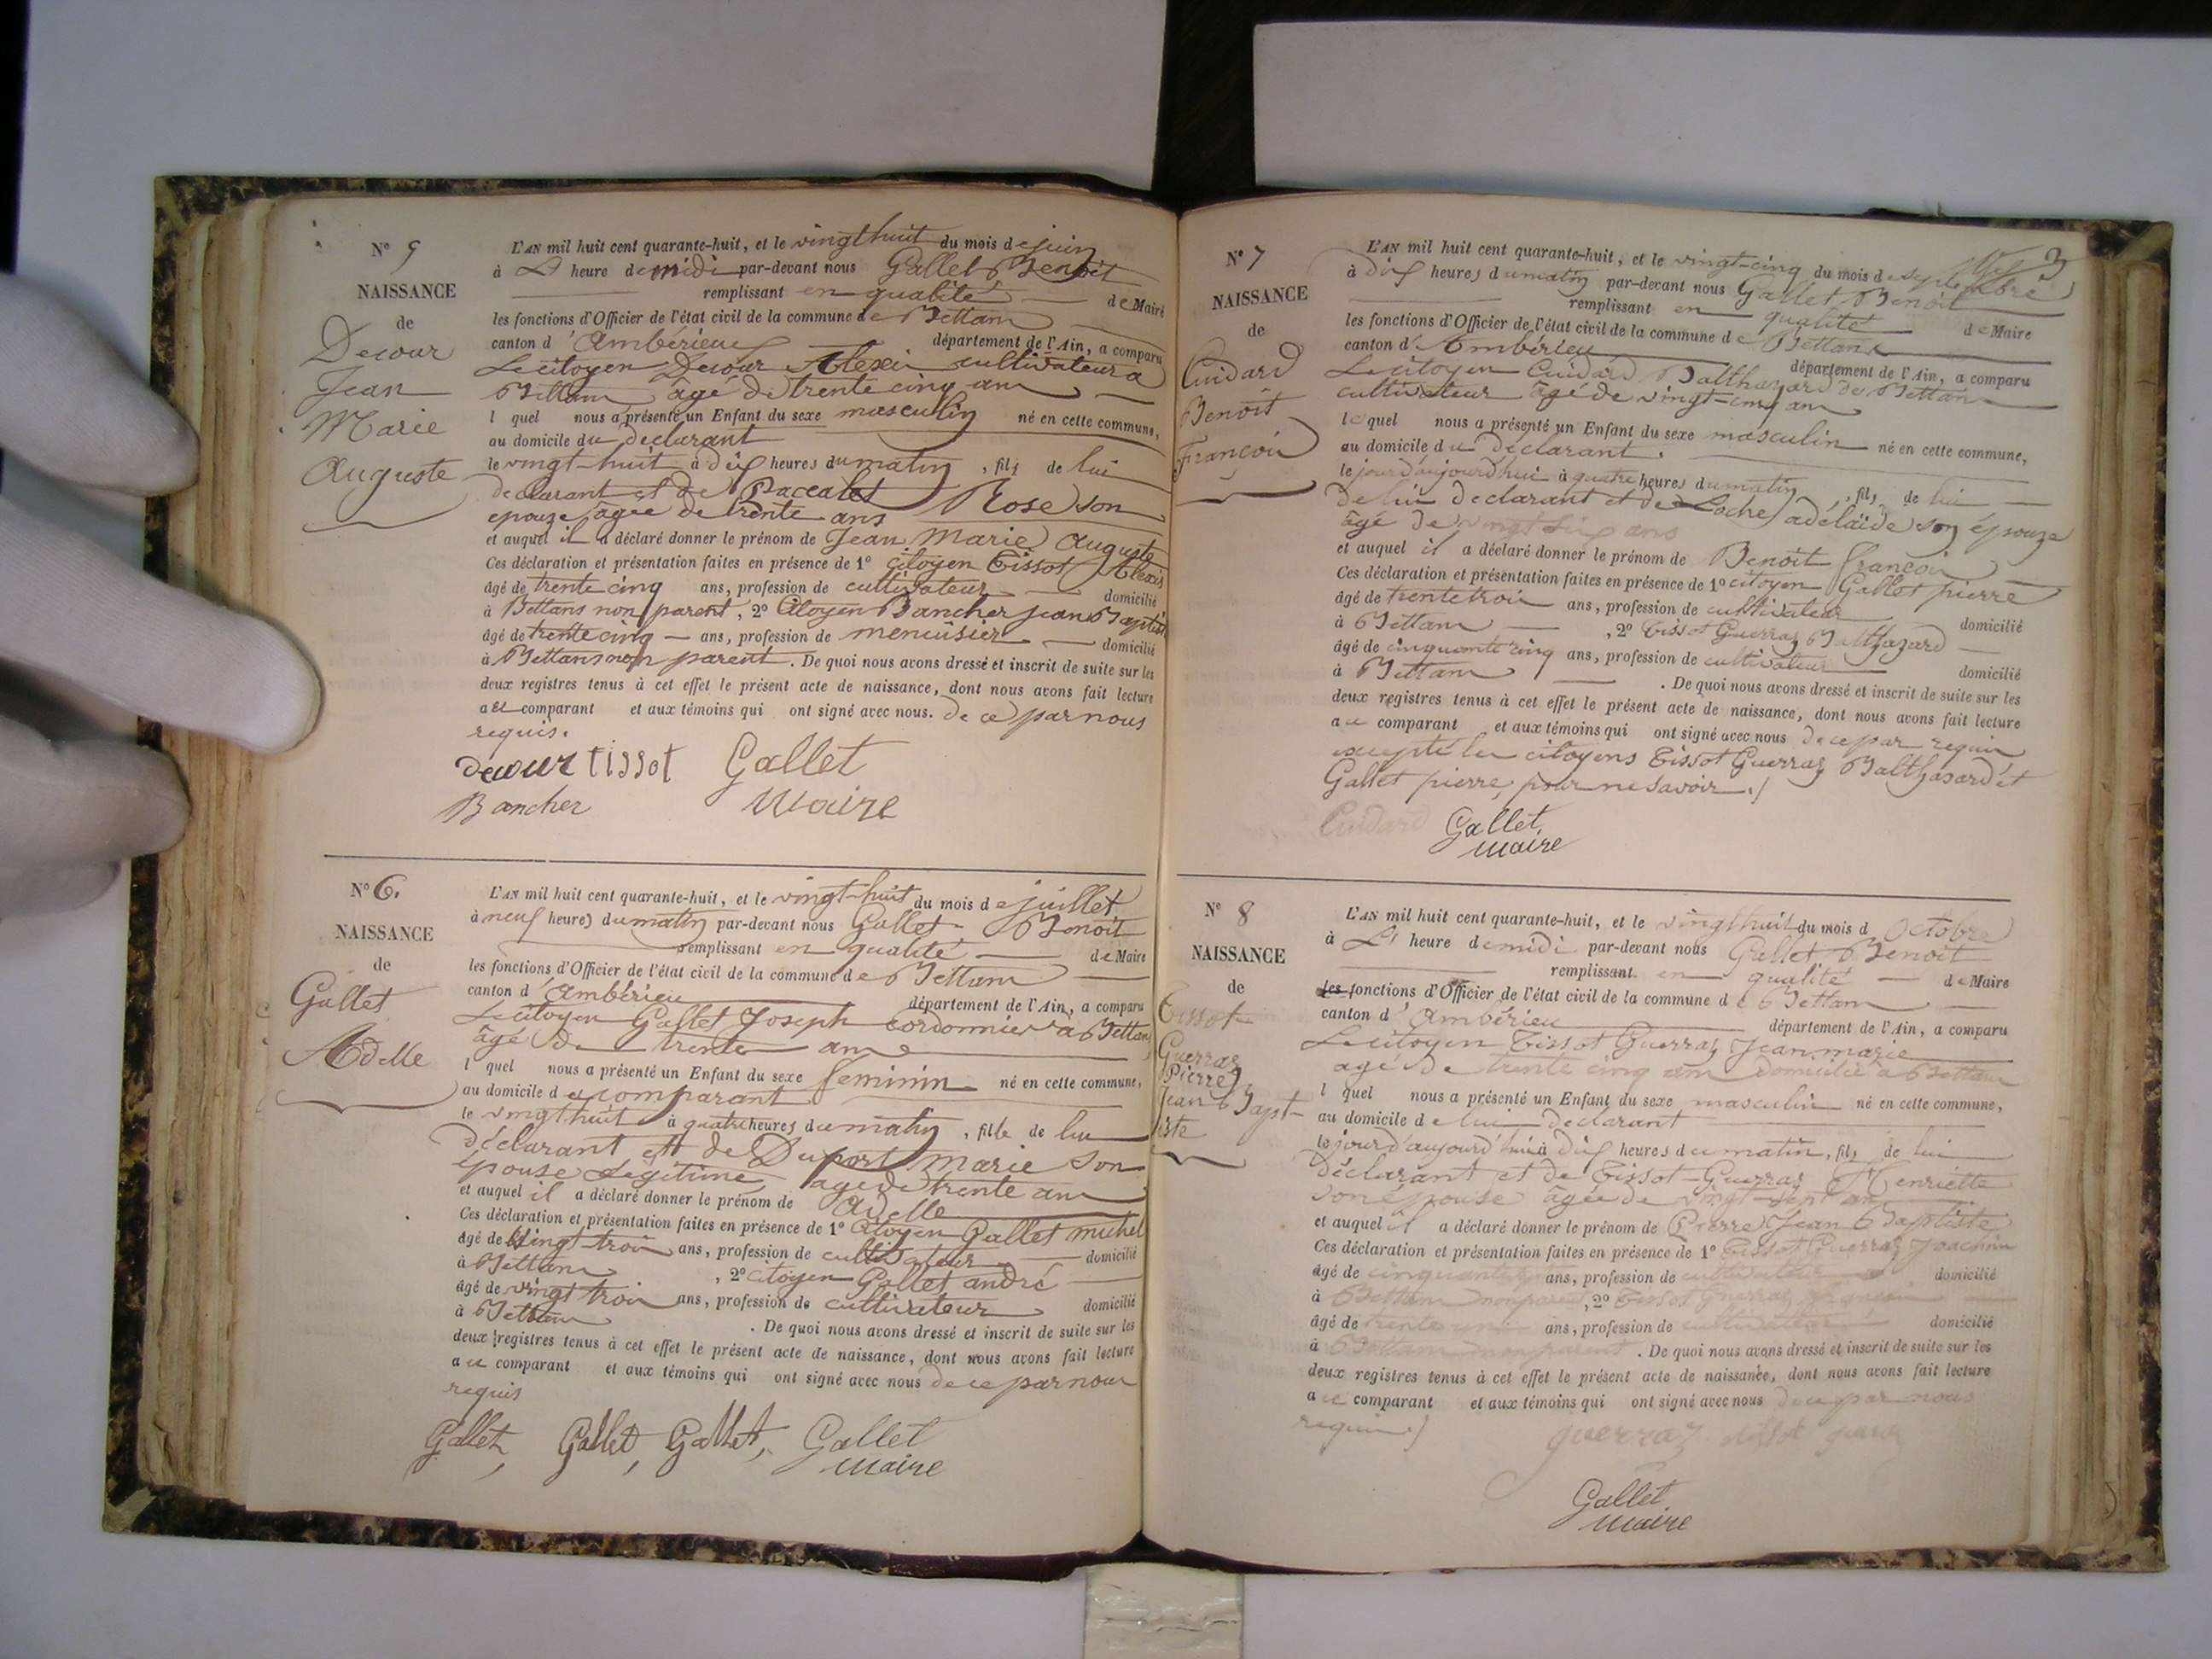 N° 5
NAISSANCE
de
Decour
Jean
Marie
Auguste
L'AN mil huit cent quarante-huit, et le vingt huit du mois de juin
à heure de midi par-devant nous Gallet Benoit
remplissant en qualité de Maire
les fonctions d'Officier de l'état civil de la commune de Bettans
canton d'Ambérieu département de l'Ain, a comparu
Le citoyen Decour Alexis cultivateur a
Bettans âgé de trente cinq ans
l quel nous a présenté un Enfant du sexe masculin né en cette commune,
au domicile du déclarant
le vingt-huit à dix heures du matin, fils de lui
declarant et de Paccalet Rose son
epouze agée de trente ans
et auquel il a déclaré donner le prénom de Jean Marie Auguste
Ces déclaration et présentation faites en présence de 1° citoyen Tissot Alexis
âgé de trente cinq ans, profession de cultivateur domicilié
à Bettans non parent, 2° Citoyen Bancher jean Baptist
âgé de trente cinq ans, profession de menuisier domicilié
à Bettans non parent. De quoi nous avons dressé et inscrit de suite sur les
deux registres tenus à cet effet le présent acte de naissance, dont nous avons fait lecture
au comparant et aux témoins qui ont signé avec nous. de ce par nous
requis.
decour tissot Gallet
Bancher Maire
N° 6.
NAISSANCE
de
Gallet
Adelle
L'AN mil huit cent quarante-huit, et le vingt-huit du mois de juillet
à neuf heures du matin par-devant nous Gallet Benoit
remplissant en qualité de Maire
les fonctions d'Officier de l'état civil de la commune de Bettans
canton d'Ambérieu département de l'Ain, a comparu
Le citoyen Gallet Joseph cordonnier a Bettans
âgé de trente ans
l quel nous a présenté un Enfant du sexe feminin né en cette commune,
au domicile du comparant
le vingt huit à quatre heures du matin, fille de lui
déclarant et de Duport Marie son
épouse Légitime, agée de trente ans
et auquel il a déclaré donner le prénom de Adelle
Ces déclaration et présentation faites en présence de 1° Citoyen Gallet michel
âgé de vingt-trois ans, profession de cultivateur domicilié
à Bettans, 2° citoyen Gallet andré
âgé de vingt trois ans, profession de cultivateur domicilié
à Bettans. De quoi nous avons dressé et inscrit de suite sur les
deux registres tenus à cet effet le présent acte de naissance, dont nous avons fait lecture
au comparant et aux témoins qui ont signé avec nous de ce par nous
requis
Gallet, Gallet, Gallet, Gallet
Maire
3
N° 7
NAISSANCE
de
Cuidard
Benoît
François
L'AN mil huit cent quarante-huit, et le vingt-cinq du mois de septembre
à dix heures du matin par-devant nous Gallet Benoit
remplissant en qualité de Maire
les fonctions d'Officier de l'état civil de la commune de Bettans
canton d'Ambérieu département de l'Ain, a comparu
Le citoyen Cuidard Balthazard de Bettans
cultivateur âgé de vingt-cinq ans
lequel nous a présenté un Enfant du sexe masculin né en cette commune,
au domicile du déclarant.
le jour d'aujourd'hui à quatre heures du matin, fils de lui
de lui declarant et de Loche adélaïde son épouze
âgé de vingt six ans
et auquel il a déclaré donner le prénom de Benoît françois
Ces déclaration et présentation faites en présence de 1° citoyen Gallet pierre
âgé de trente trois ans, profession de cultivateur domicilié
à Bettans, 2° Tissot Guerraz Balthazard
âgé de cinquante cinq ans, profession de cultivateur domicilié
à Bettans. De quoi nous avons dressé et inscrit de suite sur les
deux registres tenus à cet effet le présent acte de naissance, dont nous avons fait lecture
au comparant et aux témoins qui ont signé avec nous de ce par requis
excepté les citoyens Tissot Guerraz Balthasard et
Gallet pierre, pour ne savoir.
Cuidard Gallet
Maire
N° 8
NAISSANCE
de
Tissot
Guerraz
Pierre
Jean Bapt-
iste
L'AN mil huit cent quarante-huit, et le vingt huit du mois d Octobre
à heure de midi par-devant nous Gallet Benoit
remplissant en qualité de Maire
les fonctions d'Officier de l'état civil de la commune de Bettans
canton d'Ambérieu département de l'Ain, a comparu
Le citoyen Tissot Guerraz Jean marie
agé de trente cinq ans domicilié a Bettans
l quel nous a présenté un Enfant du sexe masculin né en cette commune,
au domicile de lui declarant
le jour d'aujourd'hui à dix heures du matin, fils de lui
déclarant et de Tissot-Guerraz Henriette
son épouse âgée de vingt-sept ans
et auquel il a déclaré donner le prénom de Pierre Jean Baptiste
Ces déclaration et présentation faites en présence de 1° Tissot Guerraz Joachim
âgé de cinquante ans, profession de cultivateur domicilié
à Bettans non parent, 2° Tissot Guerraz
âgé de trente ans, profession de cultivateur domicilié
à Bettans non parent. De quoi nous avons dressé et inscrit de suite sur les
deux registres tenus à cet effet le présent acte de naissance, dont nous avons fait lecture
au comparant et aux témoins qui ont signé avec nous de ce par nous
requis.
guerraz tissot
Gallet
Maire